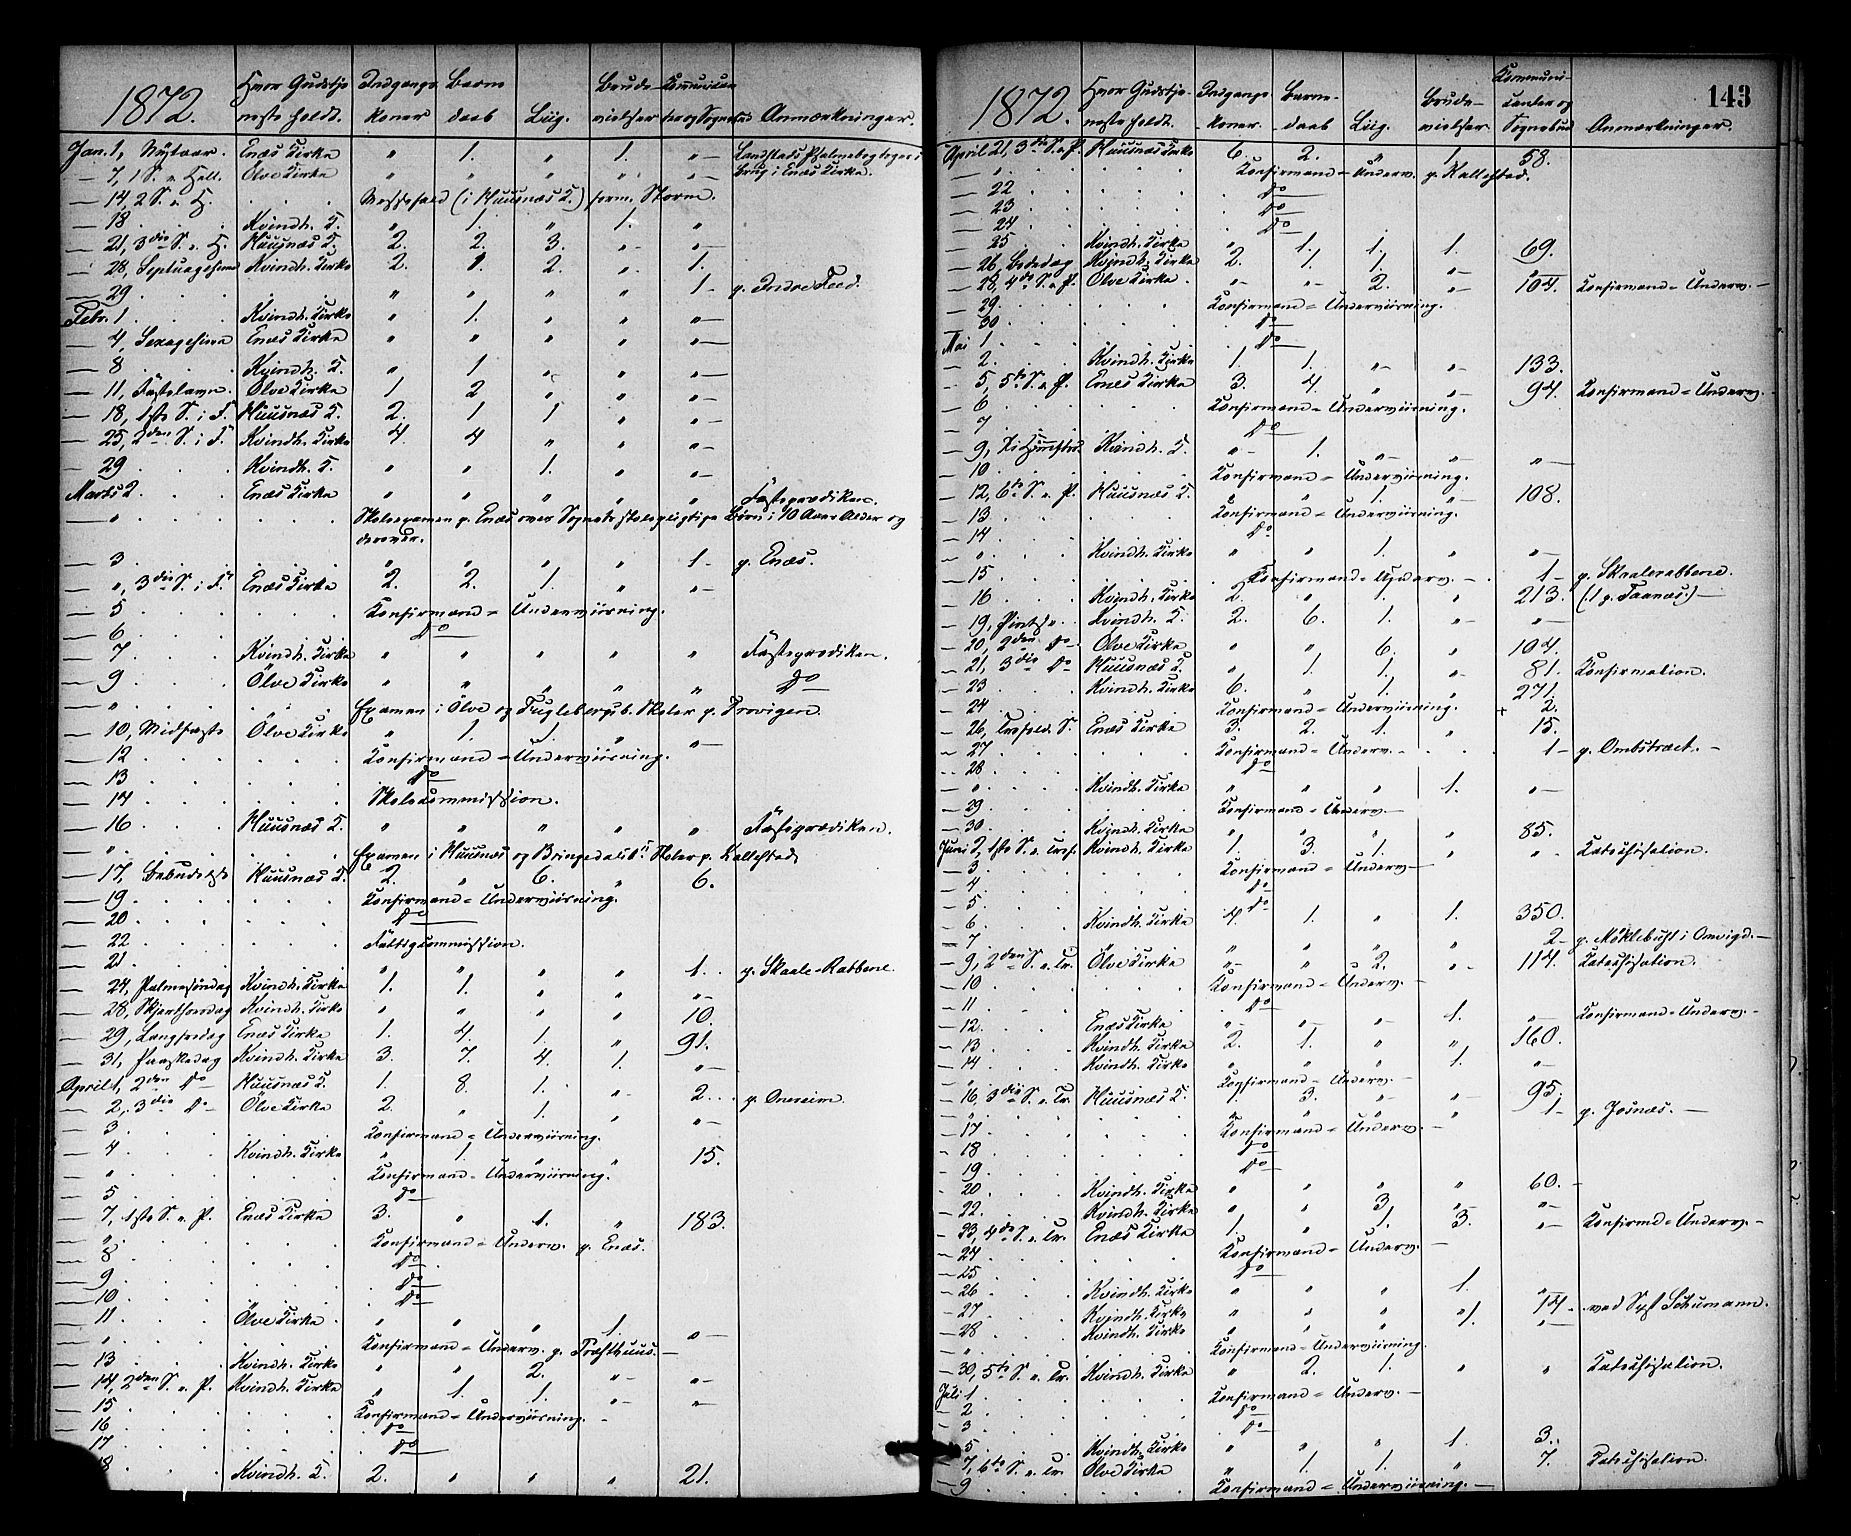 1872. Hvor Gudstje- Indgangs Barne Brude- Kommunican
neste holdt. koner daab Liig. vielser ter og Sognebud Anmærkninger.
Jan. 1, Nytaar. Enæs Kirke " 1. " 1. "— Landstads Psalmebog toges i
— 7, 1 S. e. Hell. Ölve Kirke " " " " "— brug i Enæs Kirke.
— 14, 2 S. e. H. . . . Messefald (i Huusnæs K.) form. Storm.
— 18 . . . Kvindh. K. " 1. " 1. "
— 21, 3die S. e. H. Huusnæs K. 2. 2. 3. "- "—
— 28, Septuagesima Kvindh. Kirke 2. 1. 2. ". 1.
— 29 . . . " " " " 1- p. Indre
Febr. 1 . . . Kvindh. Kirke " 1. " " "—
— 4, Sexagesima Enæs Kirke " " " " "—
— 8 . . . Kvindh. K. " 1 " " "—
— 11, Fastelavn. Ölve Kirke 1 2 " " "
— 18, 1ste S. i F. Huusnæs K. 2. 1 1 " "—
— 25, 2den S. i F. Kvindh. Kirke 4 4 " " "-
— 29 . . . Kvindh. K. " " 1. " "-
Marts 2. . . Enæs Kirke " " " " " Fasteprædiken.
— " . . . Skoleexamen p. Enæs over Sognets skolepligtige Børn i 10 Aars Alder og
derover.
— 3 . . . " " " " 1- p. Enæs.
— ", 3die S. i F. Enæs Kirke 2. 2. 1. " "-
— 5 . . . Konfirmand-Underviisning.
— 6 . . . do
— 7 . . . Kvindh. Kirke " " " " " Fasteprædiken.
— 9 . . . Ölve Kirke " " " " " do
— " . . . Examen i Ölve og Fuglebergs Skoler p. Trovigen.
— 10, Midfaste Ölve Kirke " 1. 1. " "—
— 12 . . . Konfirmand-Underviisning.
— 13 . . . do
— 14 . . . Skolecommission.
— 16 . . . Huusnæs K. " " " " " Fasteprædiken.
— " . . . Examen i Huusnæs og Bringedals Skoler p. Kallestad
— 17, Huusnæs K. 2. " 6. " 6.
— 19 . . . Konfirmand-Underviisning.
— 20 . . . do
— 22 . . . Fattigcommission.
— 21 . . . " " " " 1. p. Skaale-Rabbene.
— 24, Palmesöndag Kvindh. Kirke 1. 1. " " "-
— 28, Skjærthorsdag Kvindh. Kirke " " " " 10.
— 29, Langfredag Enæs Kirke 1. 4. 1. " 91.
— 31, Paaskedag Kvindh. Kirke 3. 7. 4. 1. "—
April 1, 2den do Huusnæs K. 1. 8. 1. "- 2... p. Onereim.
— 2, 3die do Ölve Kirke 2. " 1. " "—
— 3 . . . Konfirmand-Underviisning.
— 4 . . . Kvindh. Kirke " 1. " " 15.
— " . . . Konfirmand-Underviisning.
— 5 . . . do
— 7, 1ste S. e. P. Enæs Kirke 3. " 1. " 183.
— " . . . Konfirmand-Underv. p. Enæs.
— 8 . . . do
— 9 . . . do
— 10 . . . do
— 11 . . . Ölve Kirke " " " 1. "—
— " . . . Konfirmand-Underv. p. Træsthuus.—
— 13 . . . Kvindh. Kirke " " 2. "- "-
— 14, 2den S. e. P. Kvindh. Kirke " 1. 1. "- "—
— 15 . . . Konfirmand-Underviisning.
— 16 . . . do
— 17 . . . do
8 . . . Kvindh. K. 2. " " " 21.
143
1872. Hvor Gudstje- Indgangs Barne- Brude- Kommuni-
neste holdt. -koner. daab Liig. vielser. canter og Sognebud Anmærkninger.
April 21, 3die S. e. P. Huusnæs Kirke 6. 2. " 1. 58.
— " . . . Konfirmand-Underv. p. Kallestad.
— 22 . . . do
— 23 . . . do
— 24 . . . do
— 25 . . Kvindh. Kirke " 1. 1. 1. 69.
— 26, Bededag Kvindh. Kirke 2. 1. 1. "- "—
— 28, 4de S. e. P. Ölve Kirke "- "- 2. "- 104. Konfirmand-Underv.—
— 29 . . . Konfirmand-Underviisning.
— 30 . . . do
Mai 1 . . . do
— 2. . . Kvindh. Kirke 1. 1. "- "- 133.
— 5, 5te S. e. P. Enæs Kirke 3. 4 " " 94. Konfirmand-Underv.
— 6 . . . Konfirmand-Underviisning.
— 7 . . . do
— 9, Kr. Himmelf. Kvindh. K. "- 1. "- "- "—
— 10 . . . Konfirmand-Underviisning.
— 12, 6te S. e. P. Huusnæs K. " " 1. "- 108.
— 13 . . . Konfirmand-Underviisning.
— 14 . . . do
— " . . . Kvindh. Kirke " " 1. " "—
— 15 . . . Konfirmand-Underv.—. 1— p. Skaalerabbene.
— 16 . . . Kvindh. Kirke 2. " 1. " 213. (1 p. Taanæs)—
— 19, Pintse . Kvindh. K. 2. 6. 1. "- "—
— 20, 2den do Ölve Kirke " " 6. " 104.
— 21, 3die do Huusnæs K. " 1 1. "- 81. Konfirmation.
— 23 . . . Kvindh. Kirke 6. " 1. " 271.
— 24 . . . Konfirmand-Underviisning. + 2.
— 26, Trefold. S. Enæs Kirke 3. 2. 1. " 15.
— 27 . . . Konfirmand-Underv.— . . 1— p. Ombstræt.—
— 28 . . . do
— " . . . Kvindh. Kirke " " " 1. "—
— 29 . . . Konfirmand-Underv.—
— 30. . . Kvindh. Kirke " " " " 85.
Juni 2, 1ste S. e. Tref. Kvindh. Kirke 1. 3. 1. " "- Katechisation.
— 3 . . . Konfirmand-Underv—
— 4 . . . do
— 5 . . . do
— 6 . . . Kvindh. Kirke 4. 1. " 1. 350.
— 7 . . . " " " " 2— p. Möklebust i Omvigd.—
— 9, 2den S. e. Tr. Ölve Kirke "- " 2. "- 114. Katechisation.
— 10 . . . Konfirmand-Underv.—
— 11 . . . do
— 12. . . Enæs Kirke "- "- "- 1. "— Konfirmand-Underv.—
— 13 . . . Kvindh. Kirke 2. 1. " " 160.
— 14 . . . Kvindh. Kirke " " " 1. "—
" . . . Konfirmand-Underv.—
— 16, 3die S. e. Tr. Huusnæs K. 1. 3. "- "- 95.
— " . . . " " " " 1— p. Josnæs.—
— 17 . . . Konfirmand-Underv.—
— 18 . . . do
— 19 . . . do
— 20 . . . Kvindh. Kirke " " " " 60.—
— 22. . . Kvindh. Kirke " " 3. "- "-
— 23, 4de S. e. Tr. Enæs Kirke 1. " 1. 3. "— Konfirmd-Underv.—
— 24 . . . Konfirmand-Underv.—
— 25 . . . do
— 26 . . . Kvindh. Kirke " " " 1. "—
— 27 . . . Kvindh. Kirke " " " " 14. ved Sgf Schumann.
— 28 . . . Kvindh. Kirke " " " 1. "—
— " . . . Konfirmand-Underviisning.
— 30, 5te S. e. Tr. Kvindh. Kirke " 2. 1. " " Katechisation.
Juli 1 . . . Konfirmand-Underv.—
— 2 . . . do
— 3 . . . do
— 5 . . . Kvindh. Kirke " " " 1. 3.
— 7, 6te S. e. Tr. Ölve Kirke " 1. 1. " 7. Katechisation.
— 9 . . . Konfirmand-Underviisning.—